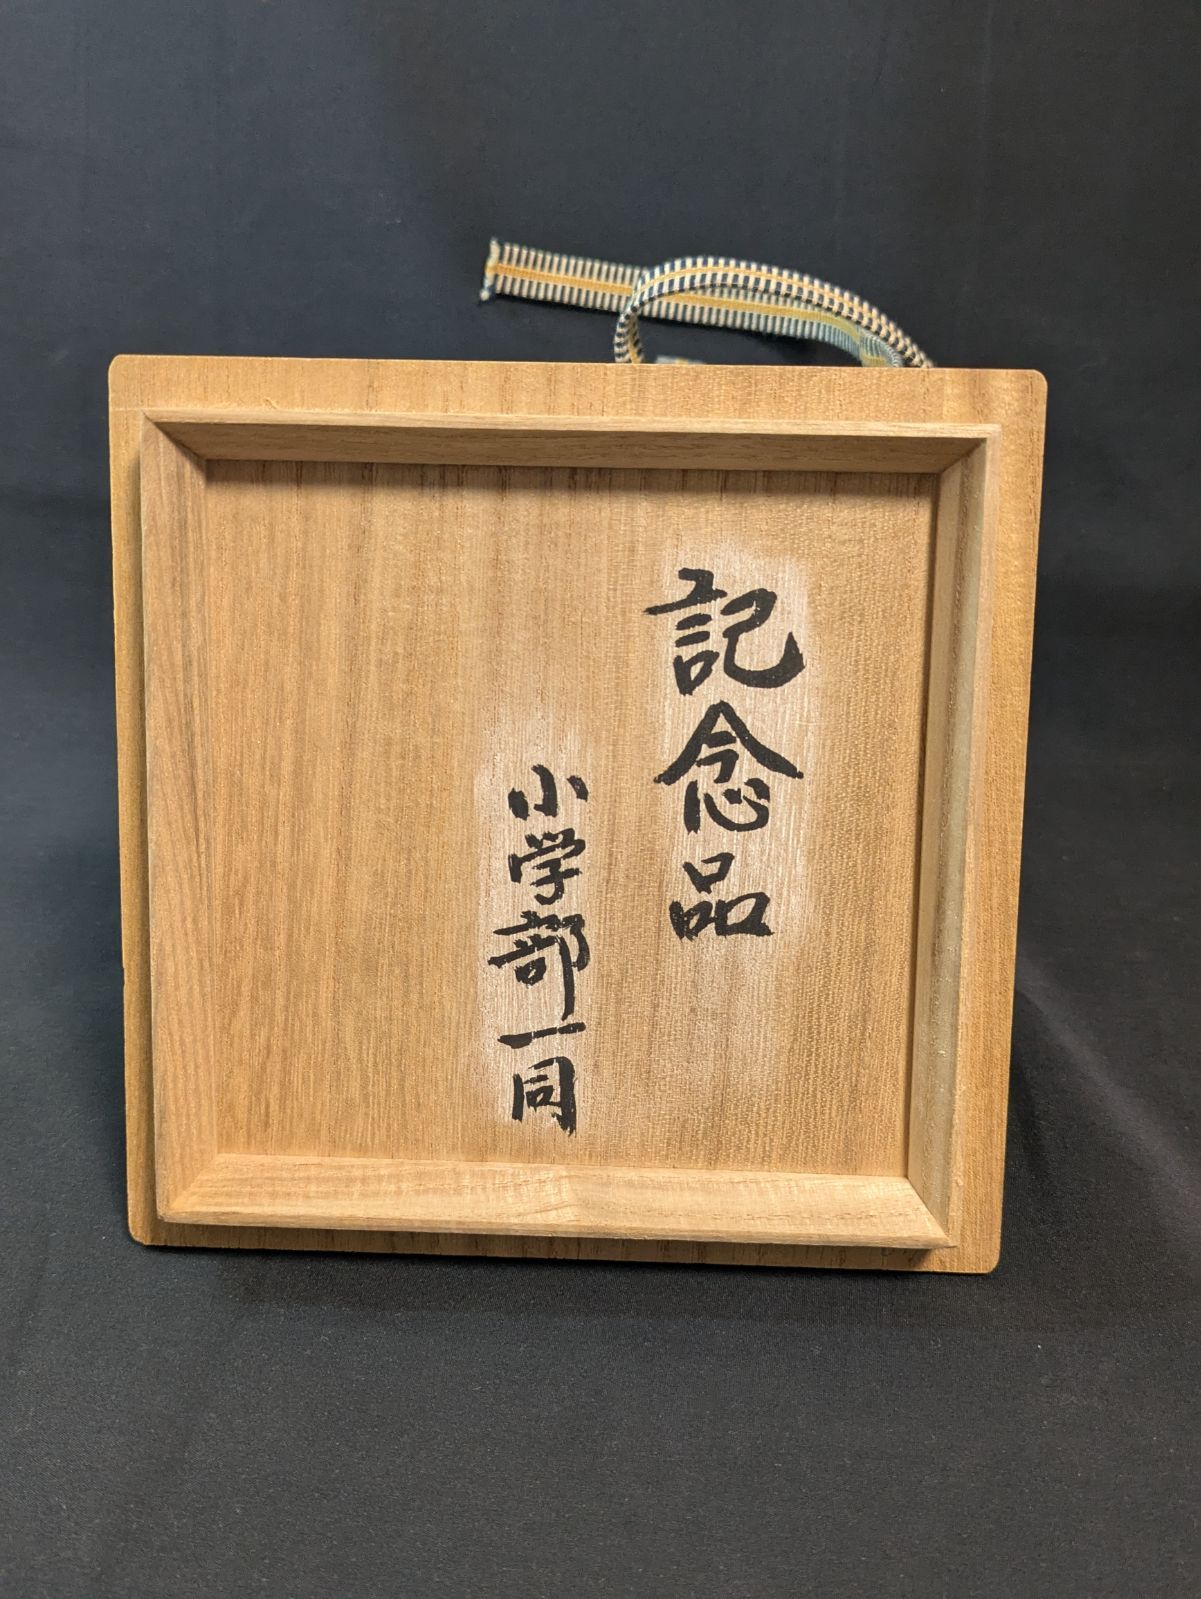 記念品
小学部一同